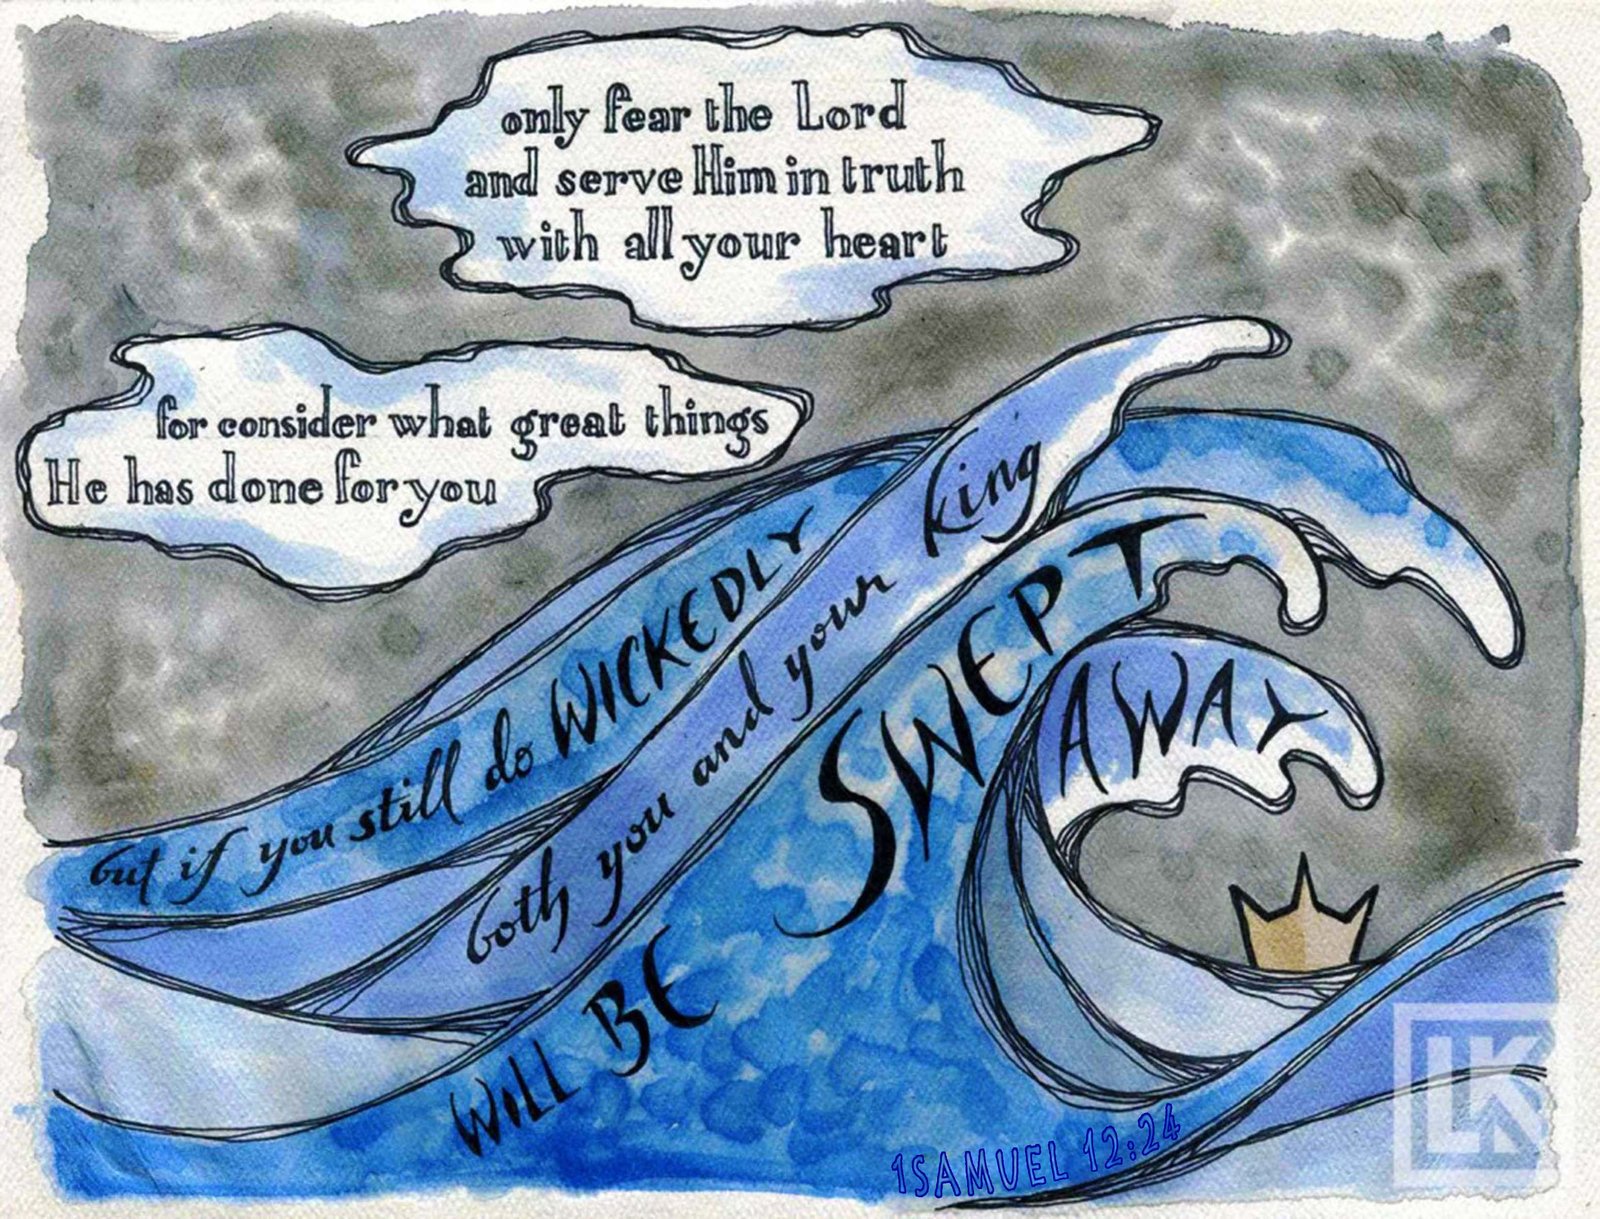 only fear the Lord
and serve Him in truth
with all your heart
for consider what great things
He has done for you
but if you still do WICKEDLY
both you and your king
WILL BE SWEPT
AWAY
1SAMUEL 12:24
LK